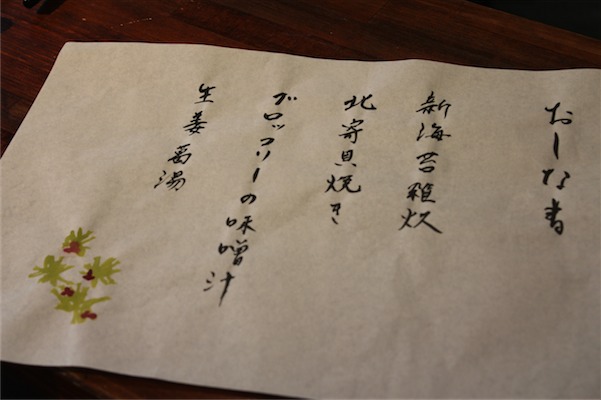 おしな書
新海苔雑炊
北寄貝焼き
ブロッコリーの味噌汁
生姜葛湯